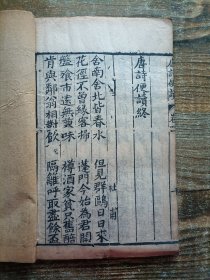 唐詩便讀終
舍南舍北皆春水 但見群鷗日日來
花徑不曾緣客掃 蓬門今始為君開
盤飧市遠無兼味 樽酒家貧只舊醅
肯與鄰翁相對飲 隔籬呼取盡餘盃